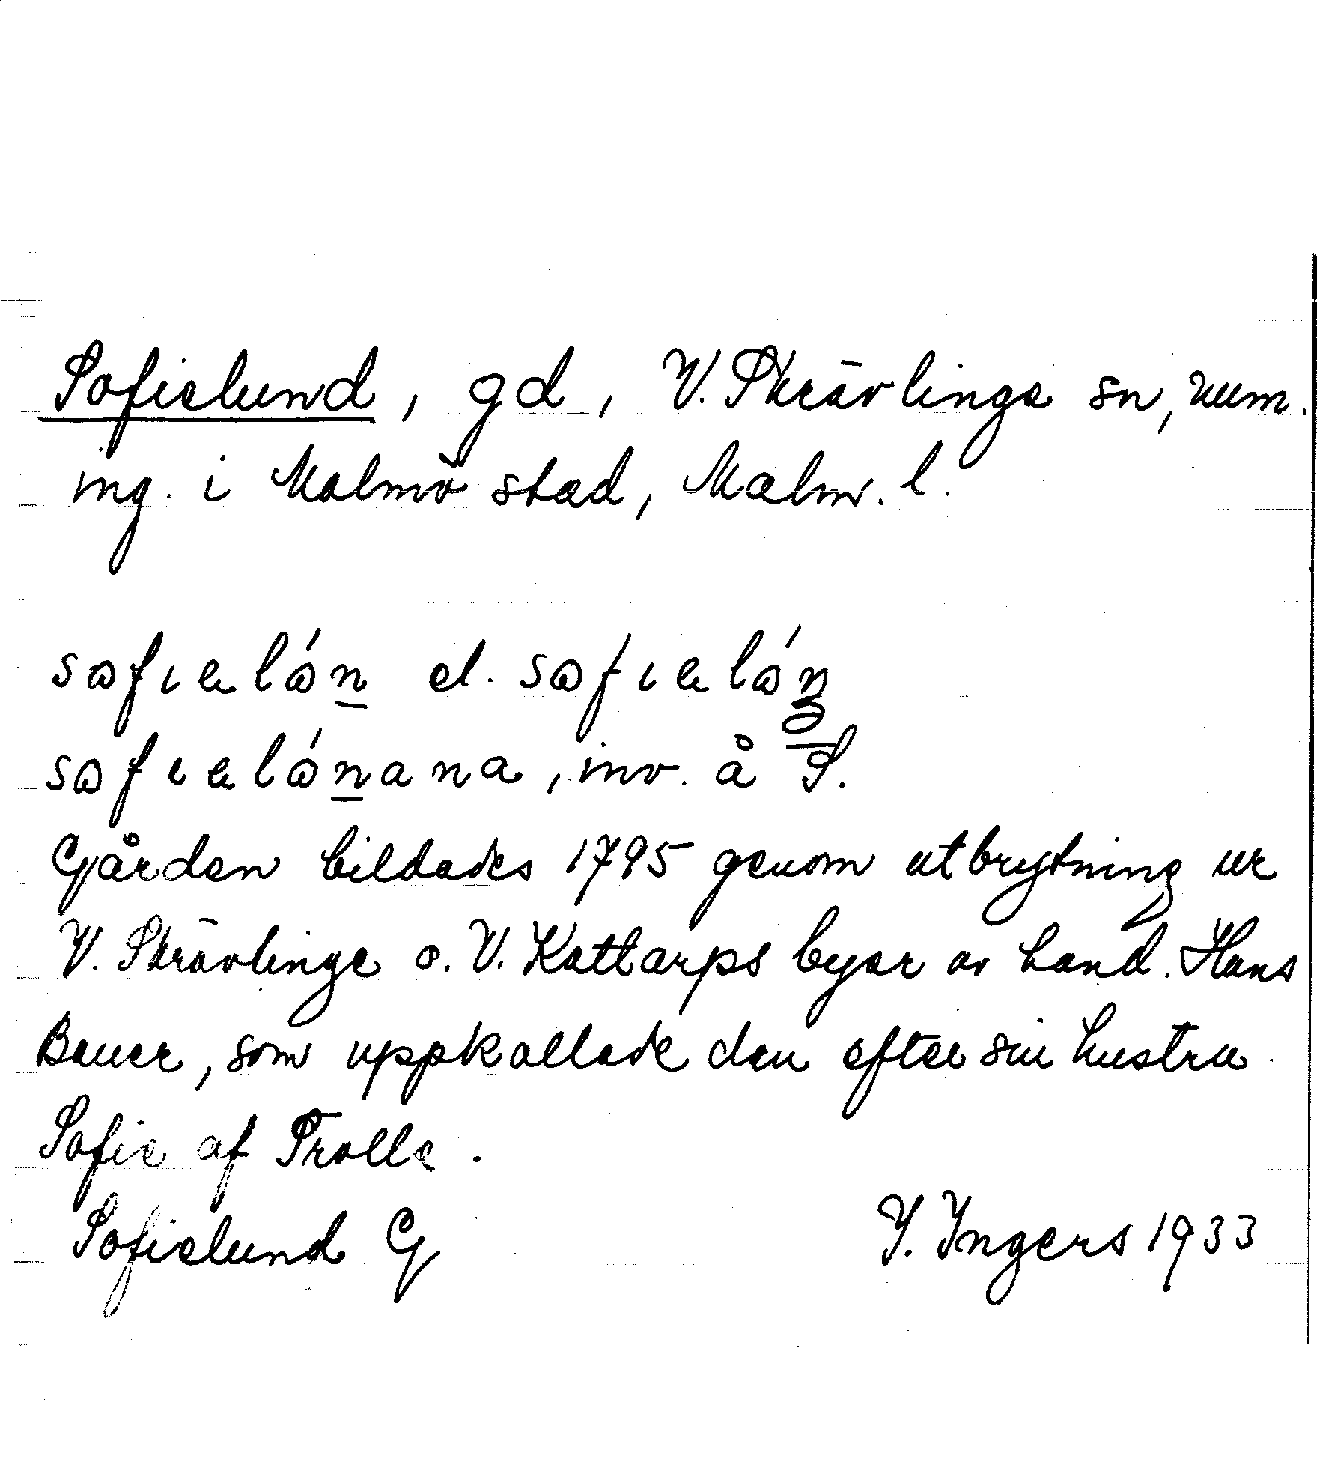 Sofielund, gd, V. Skrävlinge sn, num.
ing. i Malmö stad, Malm. l.
sɷfıɐlɷ́n̲ el. sɷfıɐlɷ́n
sɷfıɐlɷ́n̲ana, inv. å S.
Gården bildades 1795 genom utbrytning ur
V. Skrävlinge o. V. Kattarps byar av hand. Hans
Bauer, som uppkallade den efter sin hustru
Sofie af Trolle.
Sofielund G
I. Ingers 1933